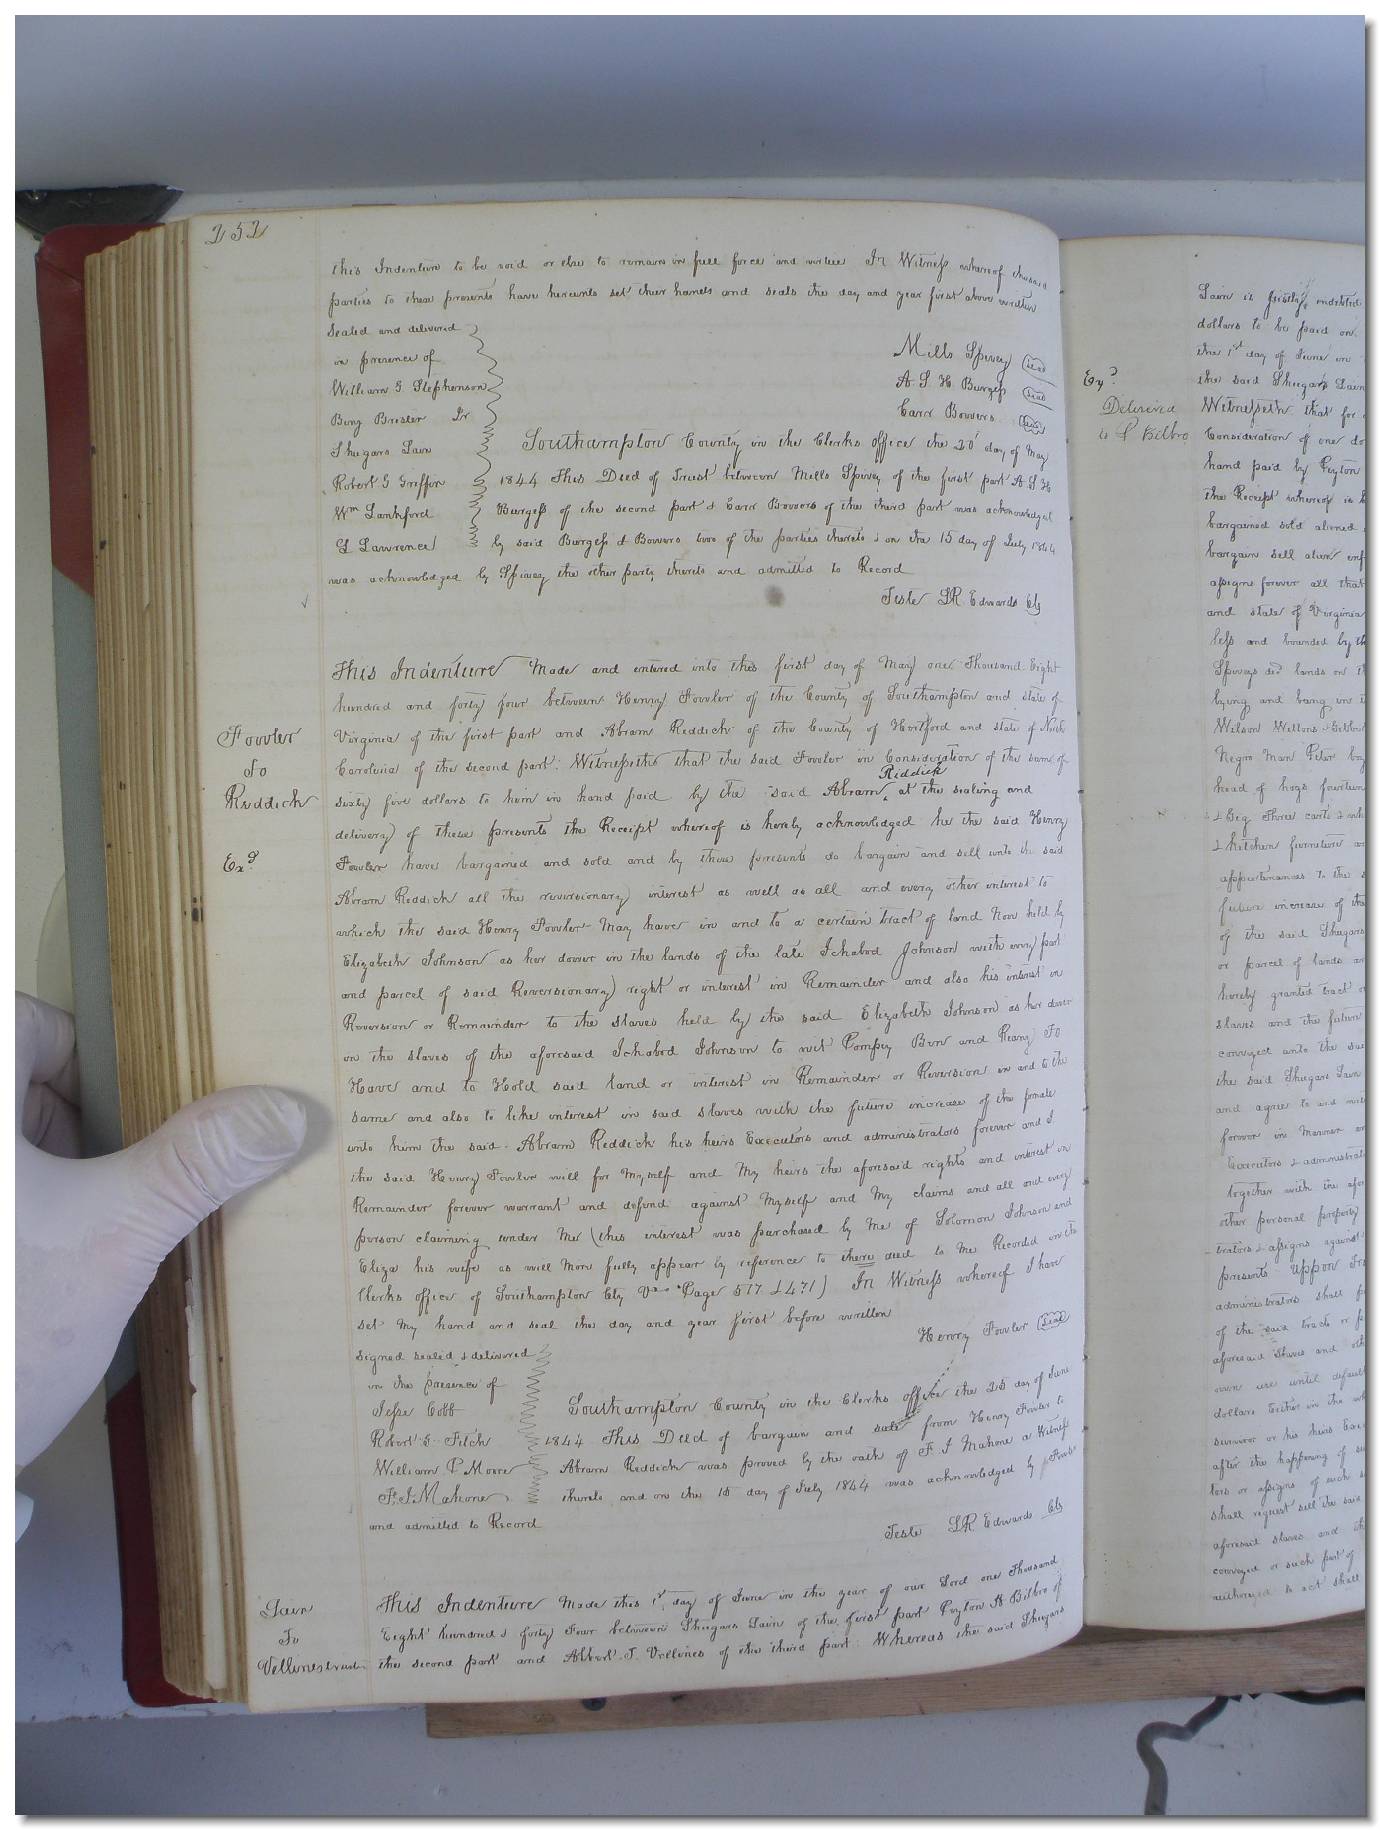 252
this Indenture to be void or else to remain in full force and virtue In Witness whereof the said
parties to these presents have hereunto set their hands and seals the day and year first above written
Sealed and delivered
in presence of
Mills Spivey Seal
William G Stephenson
A. S. H. Burgess Seal
Benj Brister Jr
Carr Bowers Seal
Shugars Lain
Southampton County in the Clerks office the 20 day of May
Robert G Griffin
1844 This Deed of Trust between Mills Spivey of the first part A S H
Wm Lankford
Burgess of the second part & Carr Bowers of the third part was acknowledged
G Lawrence
by said Burgess & Bowers two of the parties thereto & on the 15 day of July 1844
was acknowledged by Spivey the other party thereto and admitted to Record
Teste LR Edwards Clk
This Indenture Made and entered into this first day of May one Thousand Eight
hundred and forty four between Henry Fowler of the County of Southampton and state of
Fowler
Virginia of the first part and Abram Reddick of the County of Hertford and state of North
To
Carolina of the second part: Witnesseth that the said Fowler in Consideration of the sum of
Riddick
Reddick
sixty five dollars to him in hand paid by the said Abram at the sealing and
delivery of these presents the Receipt whereof is hereby acknowledged he the said Henry
Exd
Fowler have bargained and sold and by these presents do bargain and sell unto the said
Abram Reddick all the reversionary interest as well as all and every other interest to
which the said Henry Fowler May have in and to a certain tract of land Now held by
Elizabeth Johnson as her dower in the lands of the late Ichabod Johnson with every part
and parcel of said Reversionary right or interest in Remainder and also his interest in
Reversion or Remainder to the slaves held by the said Elizabeth Johnson as her dower
in the slaves of the aforesaid Ichabod Johnson to wit Pompey Ben and To
Have and to Hold said land or interest in Remainder or Reversion in and to the
same and also to like interest in said slaves with the future increase of the female
unto him the said Abram Reddick his heirs Executors and administrators forever and I
the said Henry Fowler will for Myself and My heirs the aforesaid rights and interest in
Remainder forever warrant and defend against Myself and My claims and all and every
person claiming under Me (this interest was purchased by Me of Solomon Johnson and
Eliza his wife as will More fully appear by reference to there deed to Me Recorded in the
Clerks office of Southampton Cty Page 517 & 471) In Witness whereof I have
set My hand and seal the day and year first before written
Henry Fowler Seal
signed sealed & delivered
in the presence of
Jesse Cobb
Southampton County in the Clerks office the 25 day of June
Robert G. Fitch
1844 This Deed of bargain and sale from Henry Fowler to
William P Moore
Abram Reddick was proved by the oath of F. J Mahone a Witness
F. J. Mahone
thereto and on the 15 day of July 1844 was acknowledged by Fowler
and admitted to Record
Teste LR Edwards Clk
Lain
This Indenture Made this 1st day of June in the year of our Lord one Thousand
To
Eight hundred & forty Four between Shugars Lain of the first part Peyton H Bilbro of
Vellines trustee
the second part and Albert T. Vellines of the third part: Whereas the said Shugars
Lain is justly indebted
dollars to be paid on
the 1st day of June in
Exd
the said Shugars Lain
Delivered
Witnesseth that for
to P Bilbro
Consideration of one do
hand paid by Peyton
the Receipt whereof is
bargained sold aliened
bargain sell alien enf
assigns forever all that
and state of Virginia
less and bounded by th
Spiveys decd lands on
lying and being in
Wilson
Negro Man Peter
head of hogs fourteen
& Gig Three carts &
& kitchen furniture
appurtenances to the
future increase of the
of the said Shugars
or parcel of lands
hereby granted tract
slaves and the future
conveyed unto the sai
the said Shugars Lain
and agree to and
forever in Manner
Executors & administrat
together with the afor
other personal property
trators & assigns against
presents Uppon
administrators shall
of the said tract or
aforesaid slaves and
own use until default
dollars Either in the
survivor or his heirs
after the happening of
tors or assigns of such
shall request sell the said
aforesaid slaves and th
conveyed or such part of
authorised to act shall